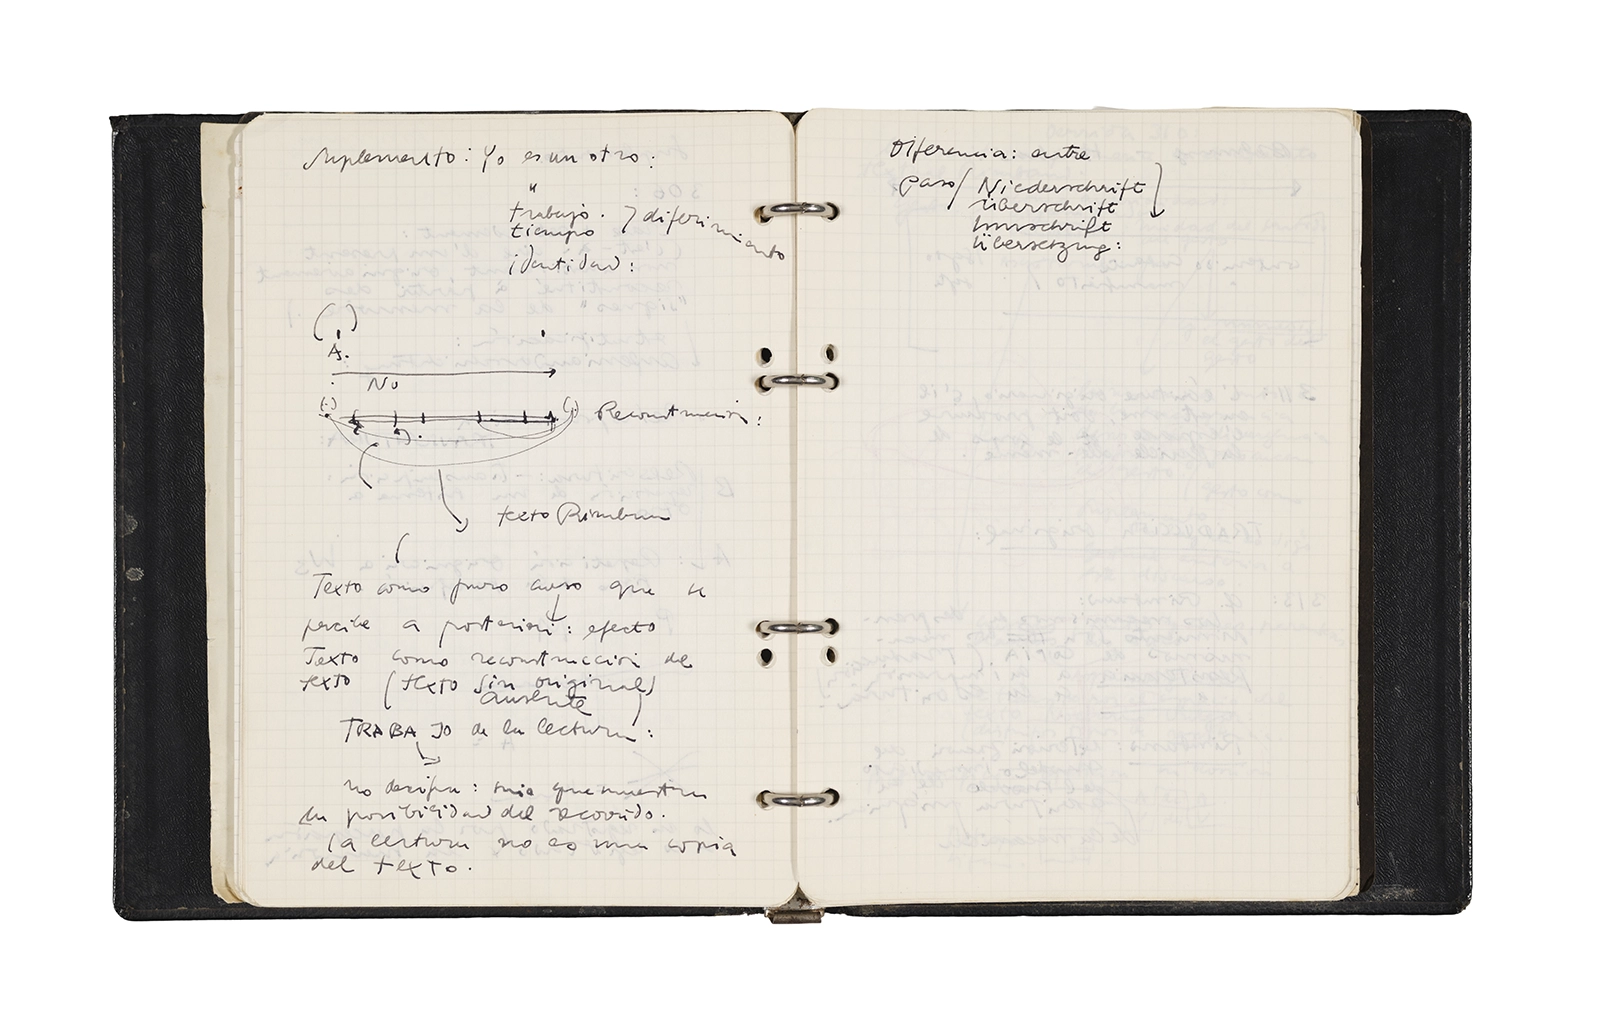 Suplemento: Yo es un otro:
"
trabajo. } diferimiento
tiempo
identidad:
( )
A.
No
(-) (.) Reconstrucción:
texto Rimbaud
Texto como puro curso que se
percibe a posteriori: efecto
Texto como reconstrucción del
texto (texto sin original)
ausente
TRABAJO de la lectura:
no descifra: sino que muestra
la posibilidad del recorrido.
la lectura no es una copia
del texto.
Diferencia: entre
paso / Niederschrift
Überschrift
Umschrift
Übersetzung: